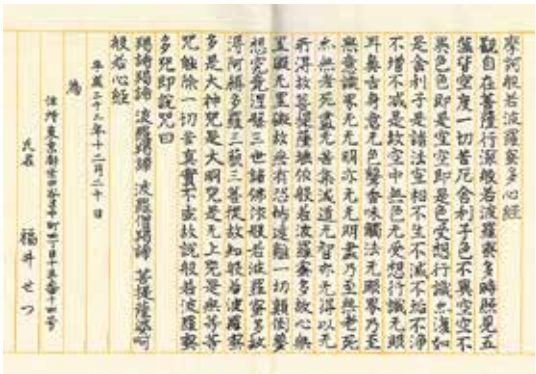 摩訶般若波羅蜜多心経
観自在菩薩行深般若波羅蜜多時照見五
蘊皆空度一切苦厄舎利子色不異空空不
異色色即是空空即是色受想行識亦復如
是舎利子是諸法空相不生不滅不垢不浄
不増不減是故空中無色无受想行識无眼
耳鼻舌身意无色聲香味觸法无眼界乃至
無意識界无无明亦无无明盡乃至無老死
亦無老死盡无苦集滅道无智亦无得以无
所得故菩提薩埵依般若波羅蜜多故心無
罣礙无罣礙故無有恐怖遠離一切顛倒夢
想究竟涅槃三世諸佛依般若波羅蜜多故
得阿耨多羅三藐三菩提故知般若波羅蜜
多是大神咒是大明咒是无上咒是無等等
咒能除一切苦真實不虚故説般若波羅蜜
多咒即説咒曰
羯諦羯諦 波羅羯諦 波羅僧羯諦 菩提薩婆呵
般若心経
平成二十三年十二月二十日
為
住所東京都世田谷区中町四丁目十五番十四号
氏名 福井せつ